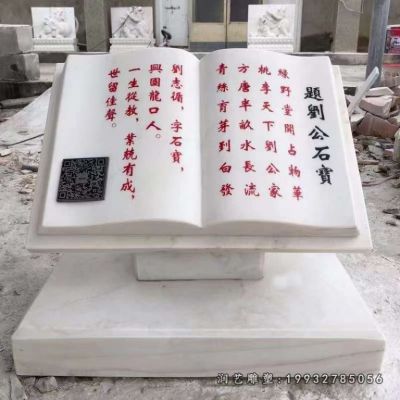 題劉公石寶
綠野堂開占物華
桃李天下劉公家
方唐半畝水長流
青絲育芽到白發
劉志，字石寶，
興國龍口人。
一生從教，業績有成，
世留佳聲。
润艺雕塑:19932785056